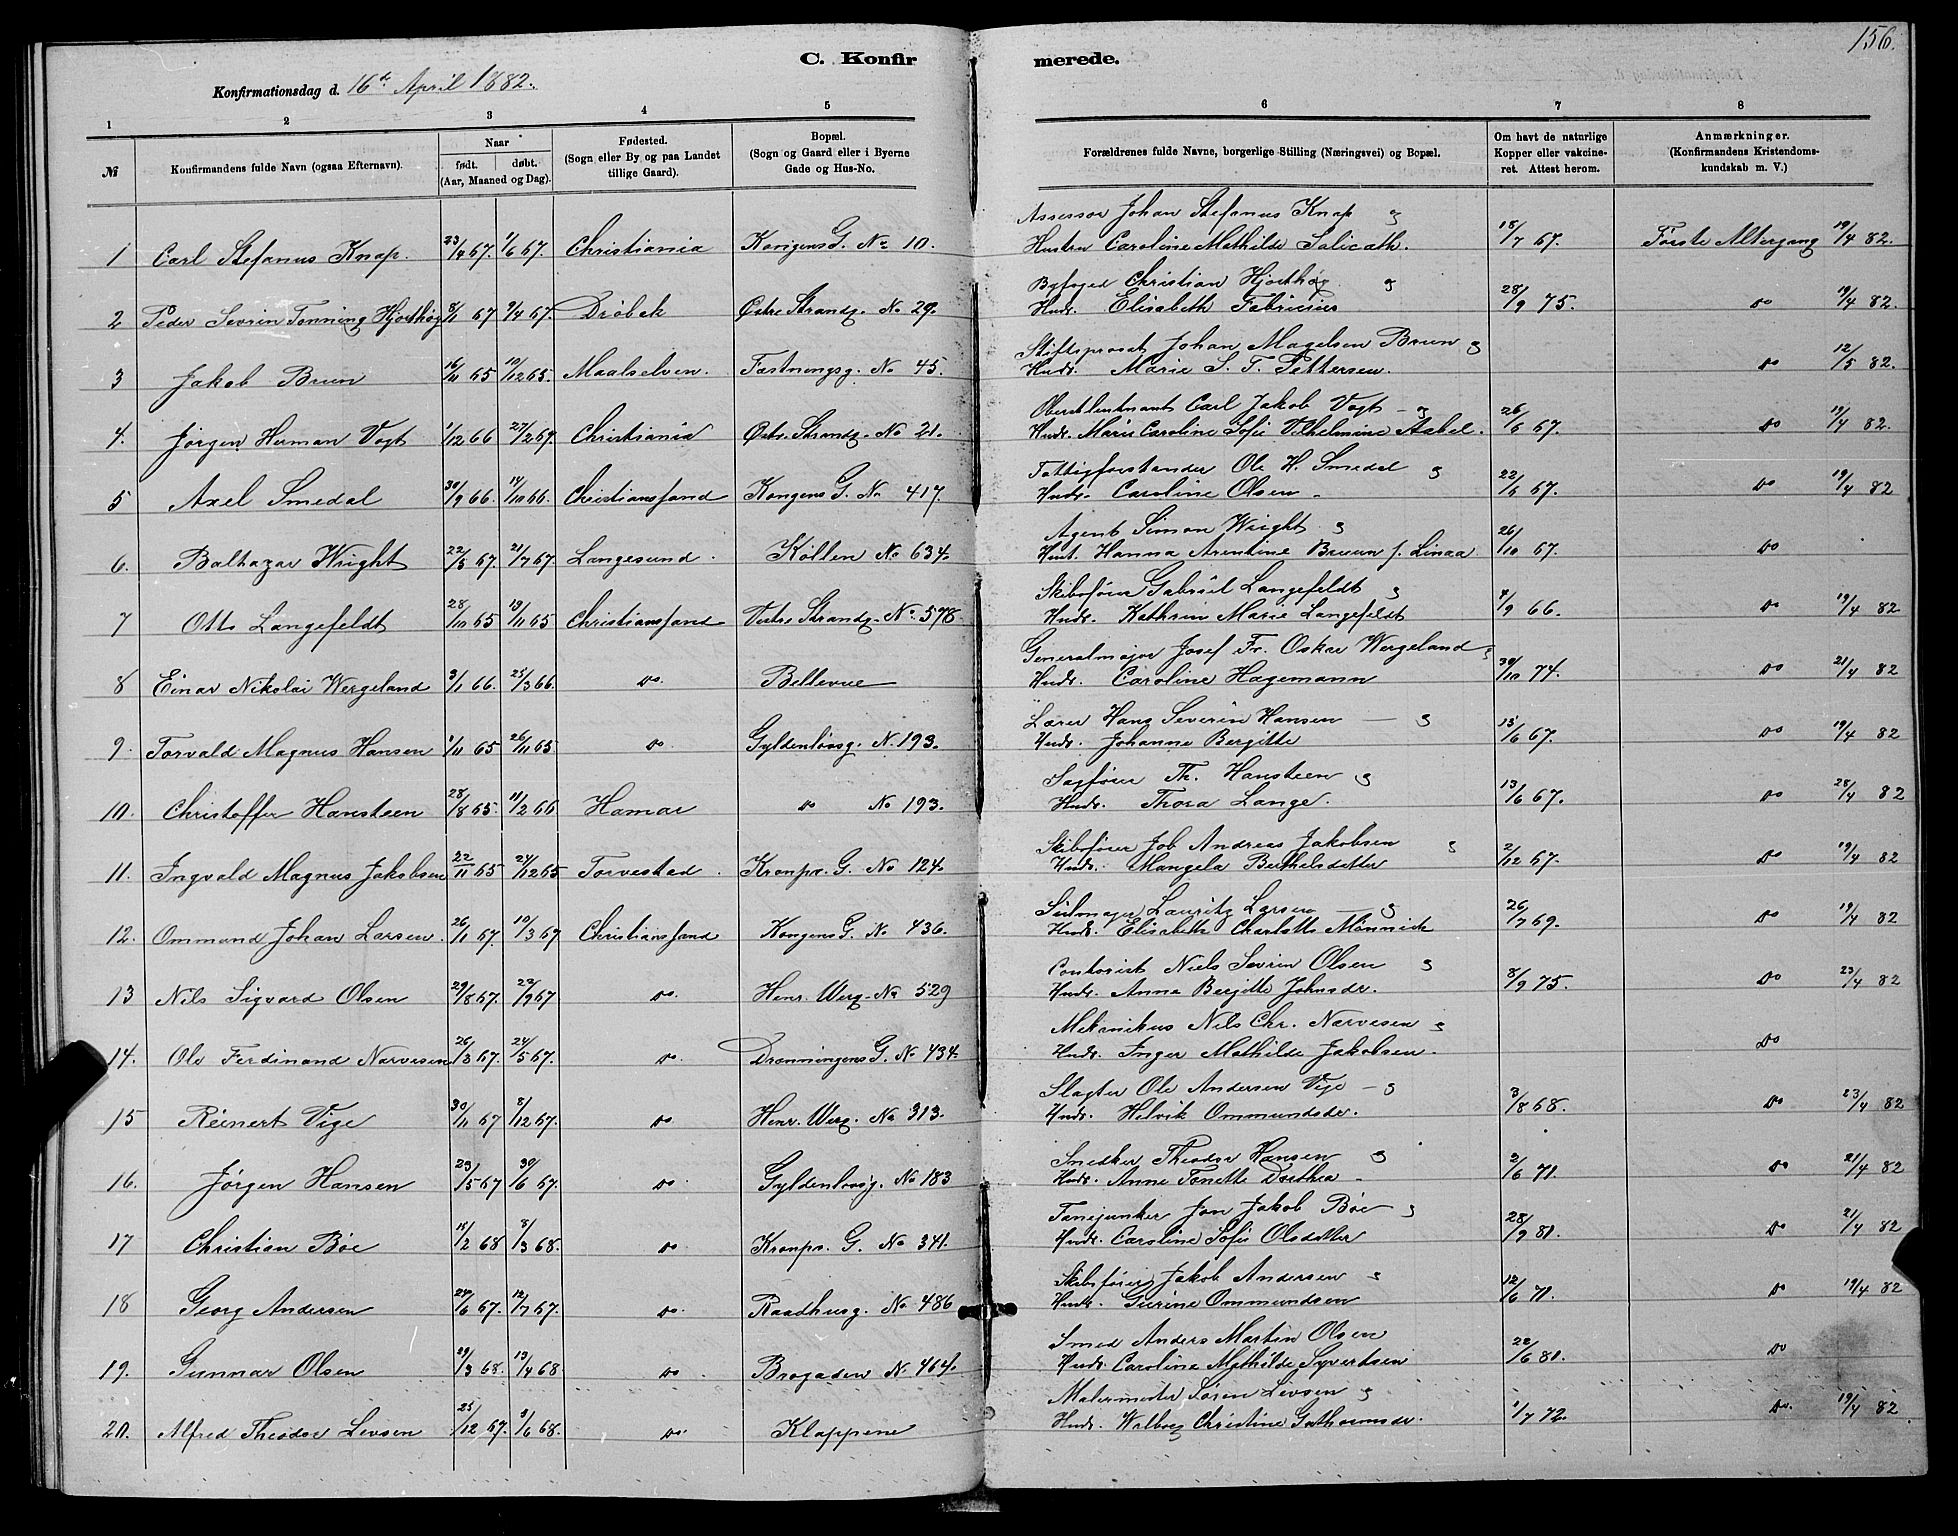 156.
C. Konfirmerede.
Konfirmationsdag d. 16de April 1882.
1 2 3 4 5 6 7 8
№ Konfirmandens fulde Navn (ogsaa Efternavn). Naar født. døbt. (Aar, Maaned og Dag). Fødested. (Sogn eller By og paa Landet tillige Gaard). Bopæl. (Sogn og Gaard eller i Byerne Gade og Hus-No. Forældrenes fulde Navne, borgerlige Stilling (Næringsvei) og Bopæl. Om havt de naturlige Kopper eller vakcineret. Attest herom. Anmærkninger. (Konfirmandens Kristendomskundskab m. V.)
Assessor Johan Stefanus Knap og
1 Carl Stefanus Knap. 23/4 67. 1/6 67. Christiania Kongens G. No 10. Hustru Caroline Mathilde Salicath. 18/7 67. Første Altergang 19/4 82.
Byfoged Christian Hjorthøg og
2 Peder Sevrin Tonning Hjorthøg 8/1 67 9/4 67. Drøbak Østre Strandg. No 29. Hustr. Elisabeth Fabricius 28/9 75. do 19/4 82.
Stiftsprovst Johan Magelsen Brun og
3 Jakob Brun 16/11 65 10/12 65. Maalselven. Fæstningsg. No 45. Hustr. Marie S. F. Pettersen. do 12/5 82.
Oberstleutnant Carl Jakob Vogt og
4. Jørgen Herman Vogt 1/12 66 27/2 67. Christiania Østre Strandg. No 21. Hustr. Marie Caroline Sofie Vilhelmine Aabel. 26/6 67. do 19/4 82.
Fattigforstander Ole H. Smedal og
5 Axel Smedal 30/9 66. 14/10 66. Christianssand Kongens G. No 417. Hustr. Caroline Olsen 22/6 67. do 19/4 82
Agent Simon Wright og
6. Balthazar Wright 22/5 67. 21/7 67. Langesund Kollen No 634. Hust. Hanna Arentine Bruun f. Linaa 26/10 67. do
Skibsfører Gabriel Langefeldt og
7 Otto Langefeldt 28/10 65 19/11 65 Christianssand Vestre Strandg. No. 578. Hustr. Kathrine Marie Langefeldt 4/9 66. do 19/4 82
Generalmajor Josef Fr. Oskar Wergeland og
8 Einar Nikolai Wergeland 3/1 66. 25/3 66. do. Bellevue Hustr. Caroline Hagemann 30/10 74. do 21/4 82
Lærer Hans Severin Hansen og
9. Torvald Magnus Hansen 1/11 65 26/11 65 do Gyldenløvsg. N. 193. Hustr. Johanne Bergitte 13/6 67. do 19/4 82
Sagfører Th. Hansteen og
10. Christoffer Hansteen 28/8 65. 11/2 66 Hamar do No 193. Hustr. Thora Lange. 13/6 67. do 28/4 82
Skibsfører Job Andreas Jakobsen og
11. Ingvald Magnus Jakobsen 22/11 65 24/12 65 Torvestad Kronpr. G. No 124. Hustr. Mangela Berthelsdatter 2/12 67. do 19/4 82
Seilmager Lauritz Larsen og
12. Ommund Johan Larsen. 26/1 67. 10/3 67 Christianssand Kongens G. No 436. Hustr. Elisabeth Charlotte Mönnich 26/7 69. do 19/4 82
Contorist Niels Sevrin Olsen og
13 Nils Sigvard Olsen 29/8 67. 22/9 67 do. Henr. Werg. No 529 Hustr. Anne Bergitte Johnsdr. 8/9 75. do 23/4 82
Mekanikus Nils Chr. Narvesen og
14. Ole Ferdinand Narvesen 26/3 67. 24/5 67. do. Dronningens G. No 434. Hustr. Inger Mathilde Jakobsen. do
Slagter Ole Andersen Vige og
15 Reinert Vige 30/11 67 8/12 67. do Henr. Werg. No 313. Hustr. Helvik Ommundsdr. 3/8 68. do 23/4 82
Snedker Theodor Hansen og
16. Jørgen Hansen 23/5 67 30/6 67. do Gyldenløvsg. No 183 Hustr. Anne Tonette Dorthea 3/6 71. do 21/4 82
Jon Jakob Bøe og
17 Christian Bøe 15/2 68 8/3 68. do Kronpr. G. No 341. Hustr. Caroline Sofie Olsdatter 28/9 81. do 21/4 82
Skibsfører Jakob Andersen og
18 Georg Andersen 27/6 67. 12/7 67. do. Raadhusg. No 486 Hustr. Gurine Ommundsen 12/6 71. do 19/4 82
Smed Anders Martin Olsen
19. Gunnar Olsen 29/3 68. 13/4 68 do Brogaden No 464. Hustr. Caroline Mathilde Syvertsen 22/6 81. do
Malermester Søren Levsen og
20. Alfred Theodor Levsen 25/12 67. 3/6 68. do. Klappene Hustr. Walborg Christine Guthormsdr. 1/7 72. do. 19/4 82